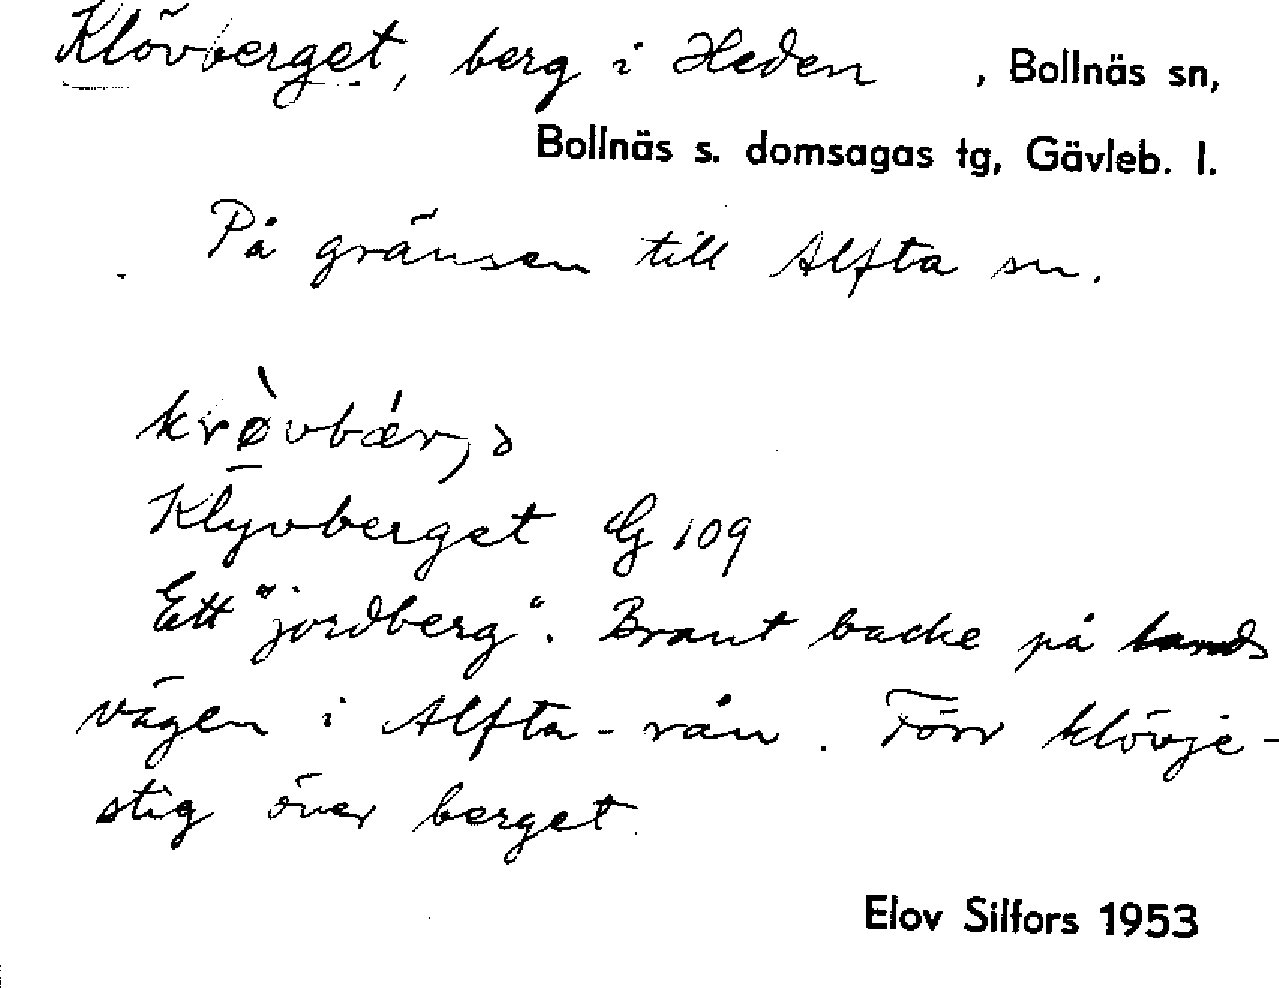 Klövberget, berg i Heden, Bollnäs sn,
Bollnäs s. domsagas tg, Gävleb. l.
På gränsen till Alfta sn.
krø̀vbǽr,ɔ
Klyvberget G 109
Ett "jordberg". Brant backe på lands
vägen i Alfta-rån. Förr klövje-
stig över berget.
Elov Silfors 1953